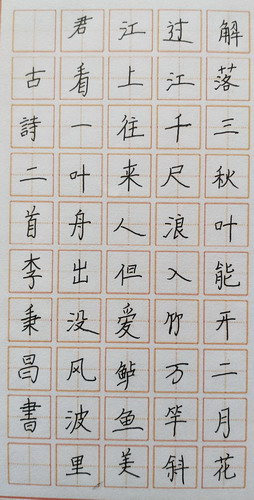 解落三秋叶能开二月花
过江千尺浪入竹万竿斜
江上往来人但爱鲈鱼美
君看一叶舟出没风波里
古詩二首李秉昌書